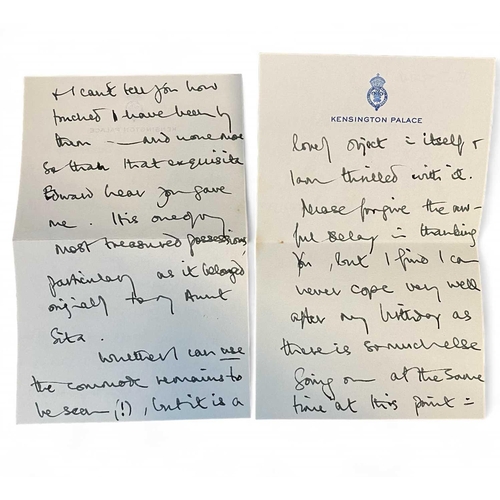 & I can't tell you how
touched I have been by
them — and none more
so than that exquisite
Edward bear you gave
me. It is one of my
most treasured possessions,
particularly as it belonged
originally to my Aunt
Sita.
Whether I can use
the commode remains to
be seen (!), but it is a
KENSINGTON PALACE
lovely object in itself &
I am thrilled with it.
Please forgive the aw-
ful delay in thanking
you, but I find I can
never cope very well
after my birthday as
there is so much else
going on at the same
time at this point =